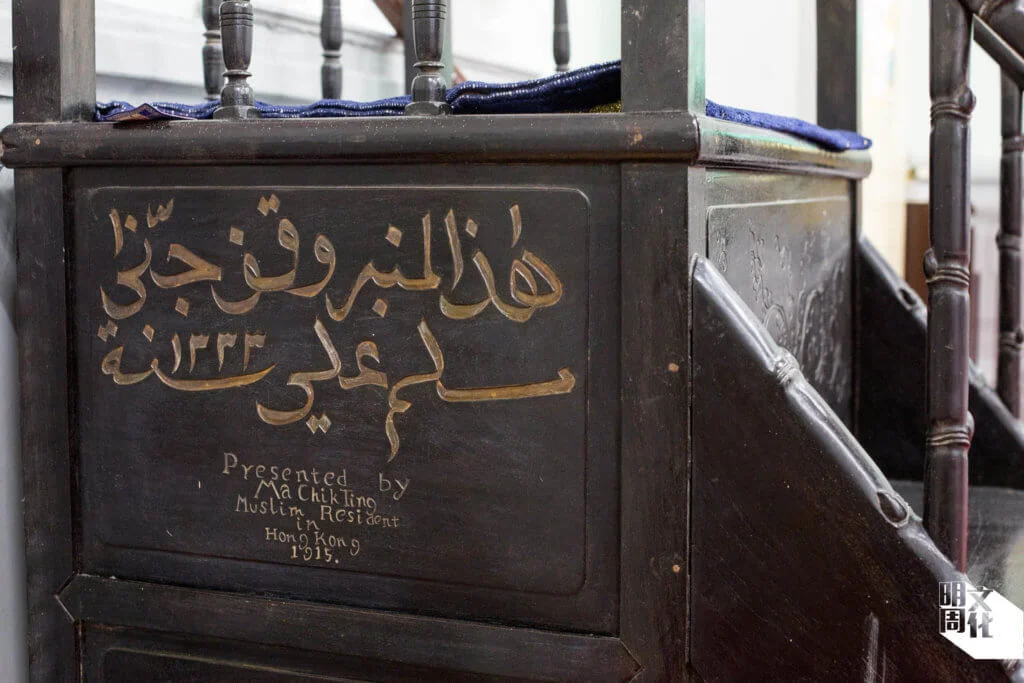 هٰذا المنبر وقف
مسلم علي سنة ١٣٣٣
Presented by
Ma Chik Ting
Muslim Resident
in
Hong Kong
1915.
明周文化